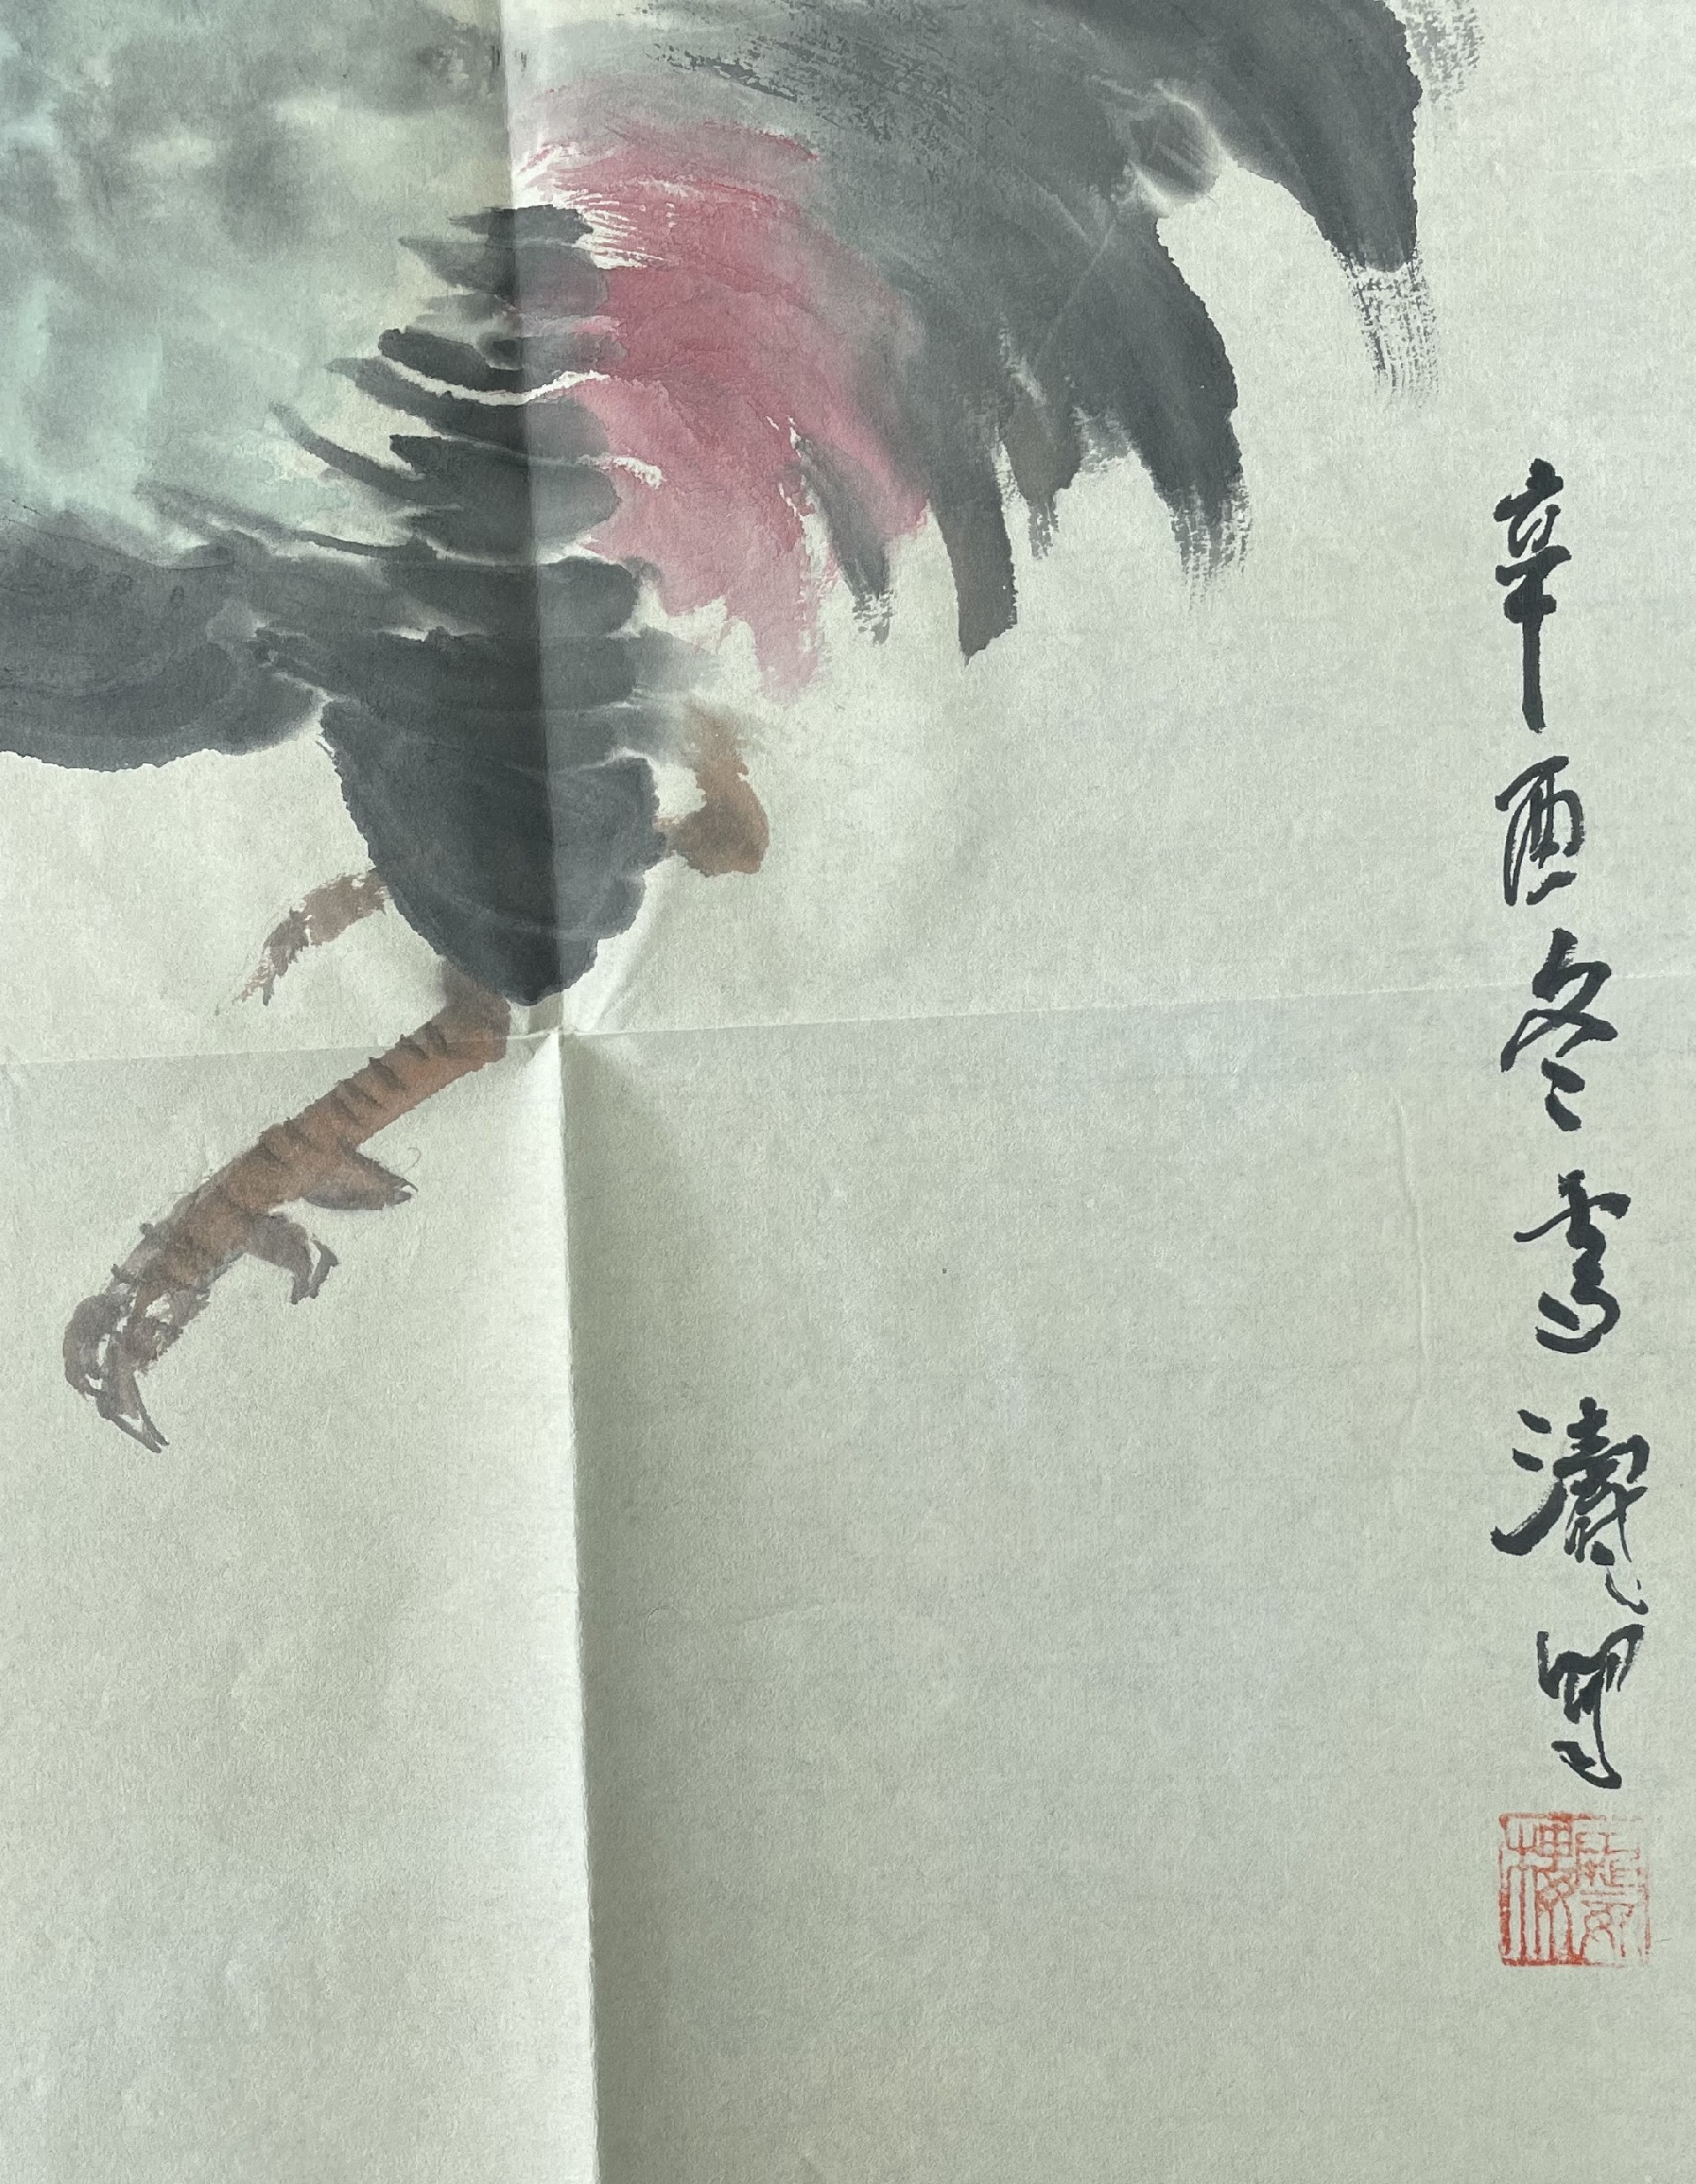 辛酉冬雪濤寫